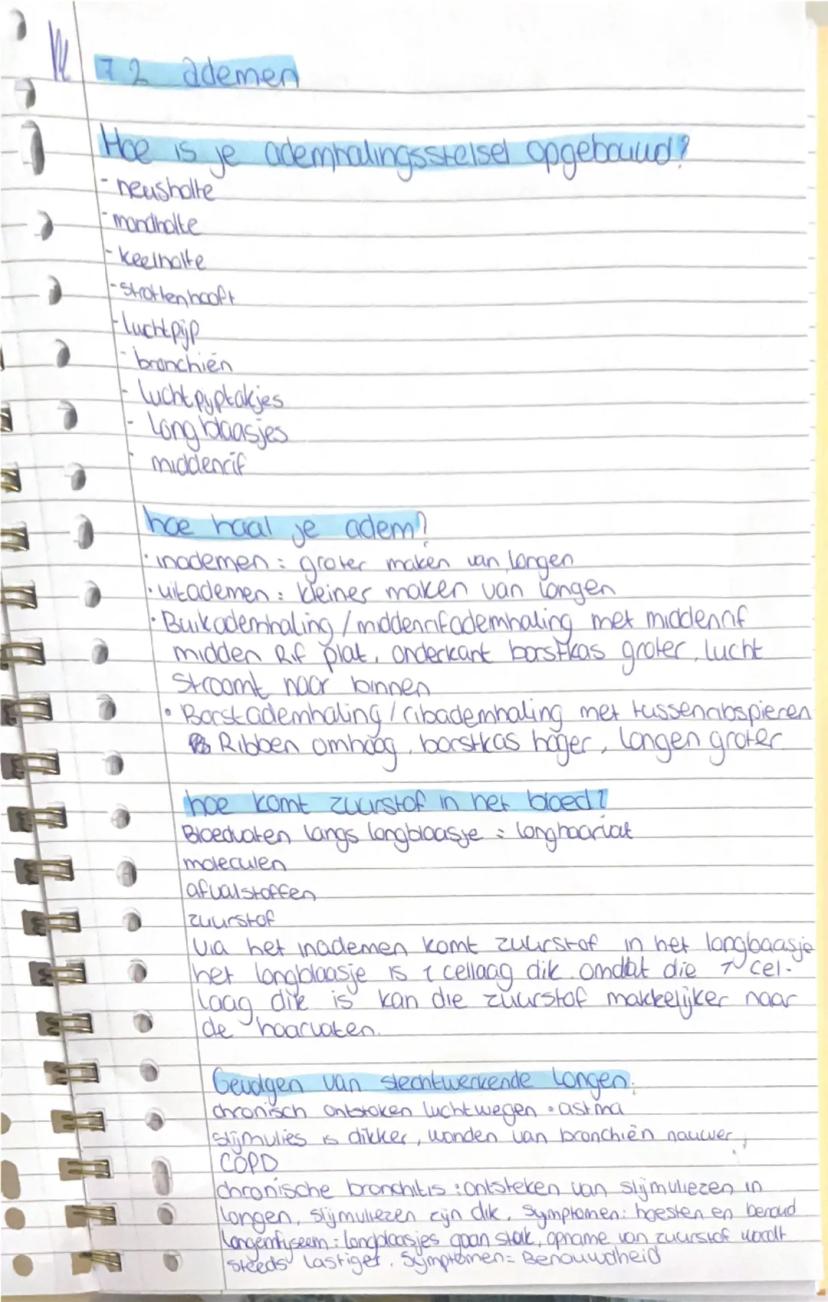 7.2 ademen
Hoe is je ademhalingsstelsel opgebouwd?
- neusholte
- mondholte
- keelholte
- strottenhooft
- luchtpijp
- bronchiën
- luchtpyptakjes
- longblaasjes
- middenrif
hoe haal je adem?
· inademen = groter maken van longen
· uitademen = kleiner maken van longen
· Buikademhaling / middenrifademhaling met middenrif
midden Rif plat, onderkant borstkas groter, lucht
stroomt naar binnen
· Borstademhaling / ribademhaling met tussenribspieren
Ribben omhoog, borstkas hoger, longen groter
hoe komt zuurstof in het bloed?
Bloedvaten langs longblaasje = longhaarvat
moleculen
afvalstoffen
zuurstof
via het inademen komt zuurstof in het longbaasje
het longblaasje is 1 cellaag dik. omdat die 1 cel-
laag dik is kan die zuurstof makkelijker naar
de haarvaten.
Gevolgen van slechtwerkende longen.
chronisch ontstoken luchtwegen · astma
slijmvlies is dikker, wanden van bronchiën nauwer,
COPD
chronische bronchitis : ontsteken van slijmvliezen in
longen, slijmvliezen zijn dik. Symptomen: hoesten en benaud
Longemfyseem = longblaasjes gaan stuk, opname van zuurstof wordt
steeds lastiger. Symptomen = Benauwdheid